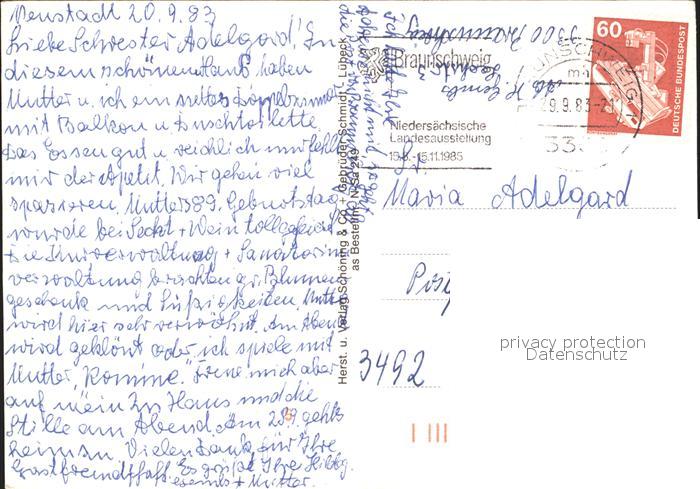 Neustadt 20.9.83
Liebe Schwester Adelgard! In
diesem schönen Haus haben
Mutter u. ich ein nettes Doppelzimmer
mit Balkon u Duschtoilette
Das Essen gut u reichlich nur fehlt
mir der Apetit. Wir gehen viel
spazieren. Mutters 89. Geburtstag
wurde bei Sekt + Wein toll gefeiert
Die Kurverwaltung + Sanatorium
verwaltung brachten gr. Blumen
geschenk und Süßigkeiten. Mutter
wird hier sehr verwöhnt. Am Abend
wird geklönt oder ich spiele mit
Mutter "Romme". Freue mich aber
auf mein Zu Haus und die
Stille am Abend. Am 28.9 gehts
heim an. Vielen Dank für Ihre
Gastfreundschaft. Es grüßt Ihre
+ Mutter.
Herst. u. Verlag Schöning & Co. + Gebrüder Schmidt · Lübeck
as Bestell-Nr. N Sa 249
3300 Braunschweig
Braunschweig
Niedersächsische
Landesausstellung
-15.11.1985
BRAUNSCHWEIG
9.9.83-
33
60
DEUTSCHE BUNDESPOST
Sr.
Maria Adelgard
3492
privacy protection
Datenschutz